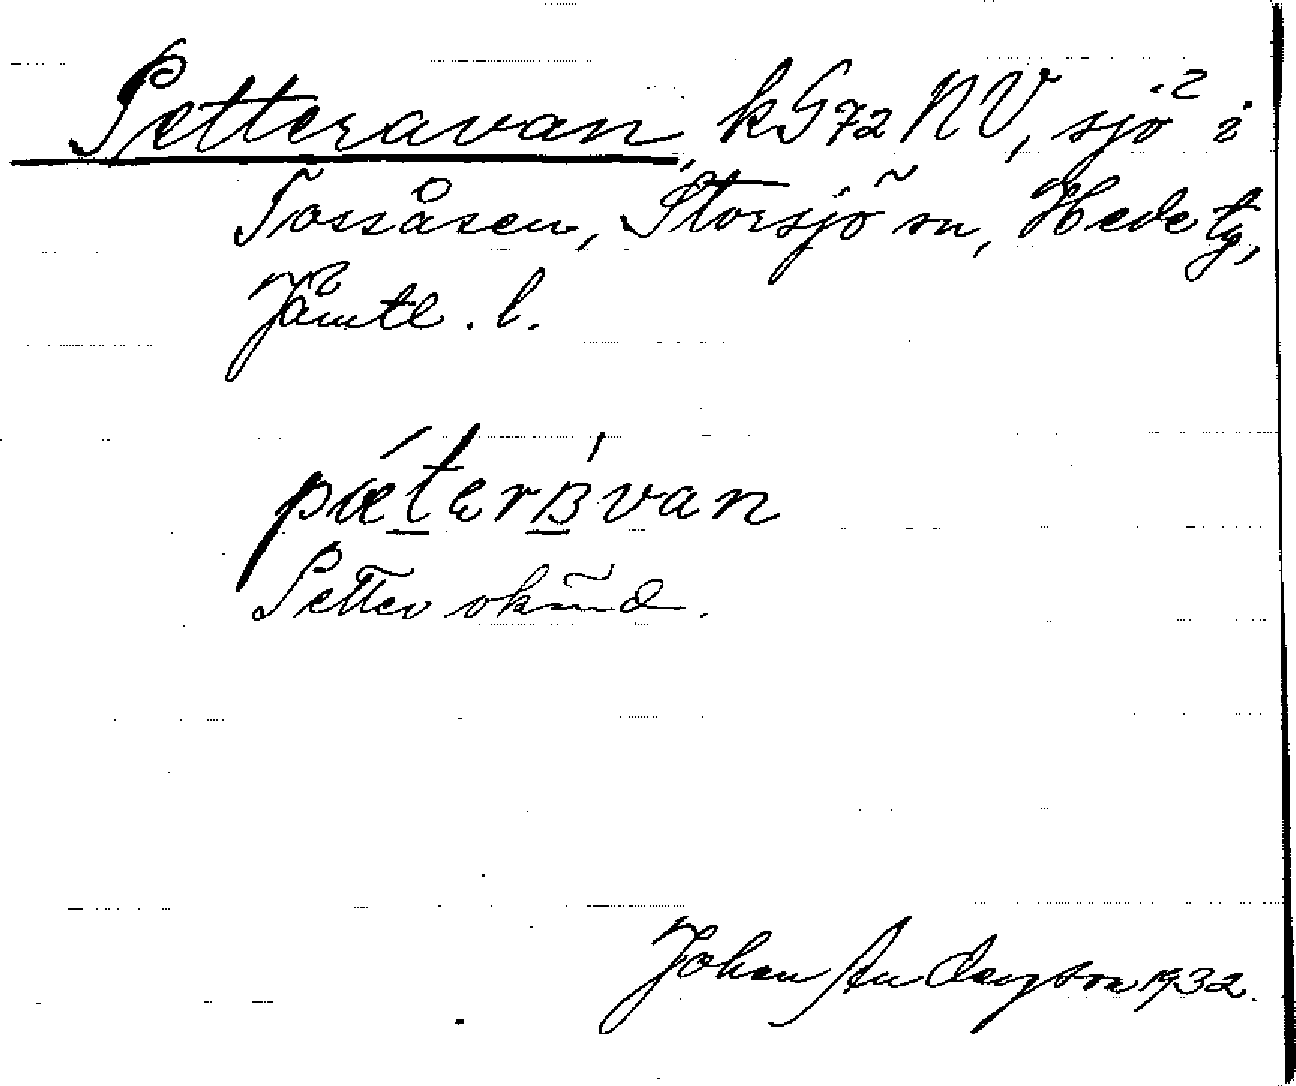 Petteravan, kG72 NV, sjö i
Tossåsen, Storsjö sn, Hede tg,
Jämtl. l.
pǽterʙ́van
Petter okänd.
Johan Anderson 1932.